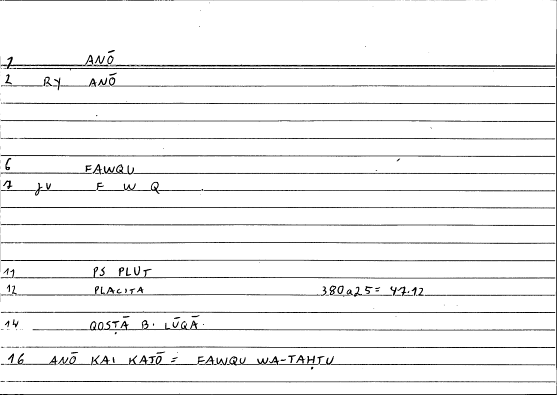 1 ANŌ
2 RY ANŌ
6 FAWQU
7 JU F W Q
11 PS PLUT
12 PLACITA 380a25 = 47.12
14 QOSṬĀ B. LŪQĀ.
16 ANŌ KAI KATŌ = FAWQU WA-TAḤTU